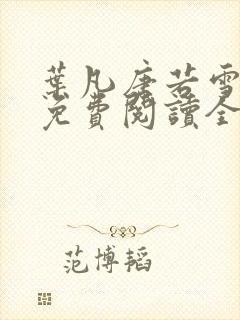 葉凡唐若雪
免費閱讀全
范博韜